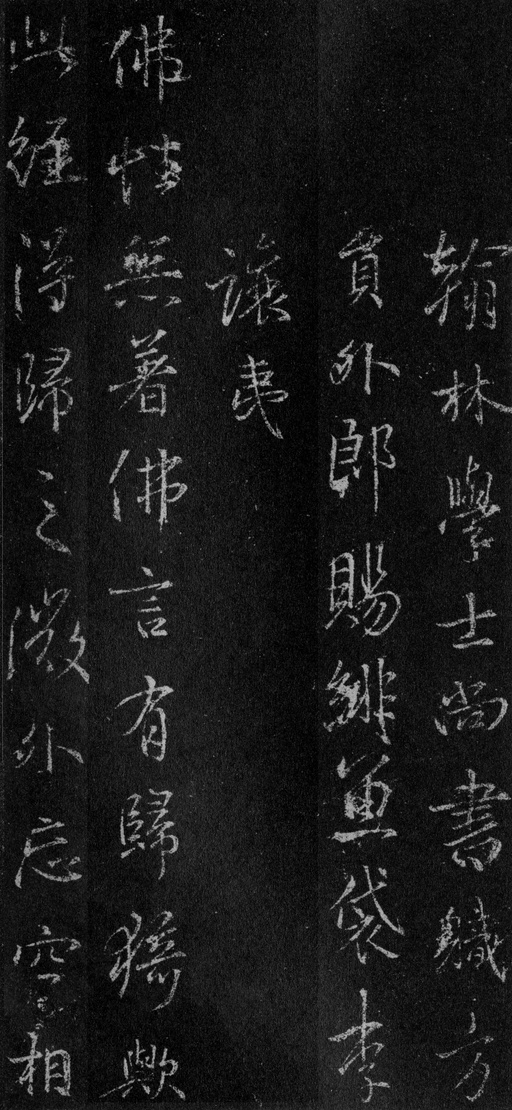 翰林學士尚書職方
貟外郎賜緋魚袋李
讓夷
佛性無著佛言有歸猗歟
此經得歸之微外忘空相